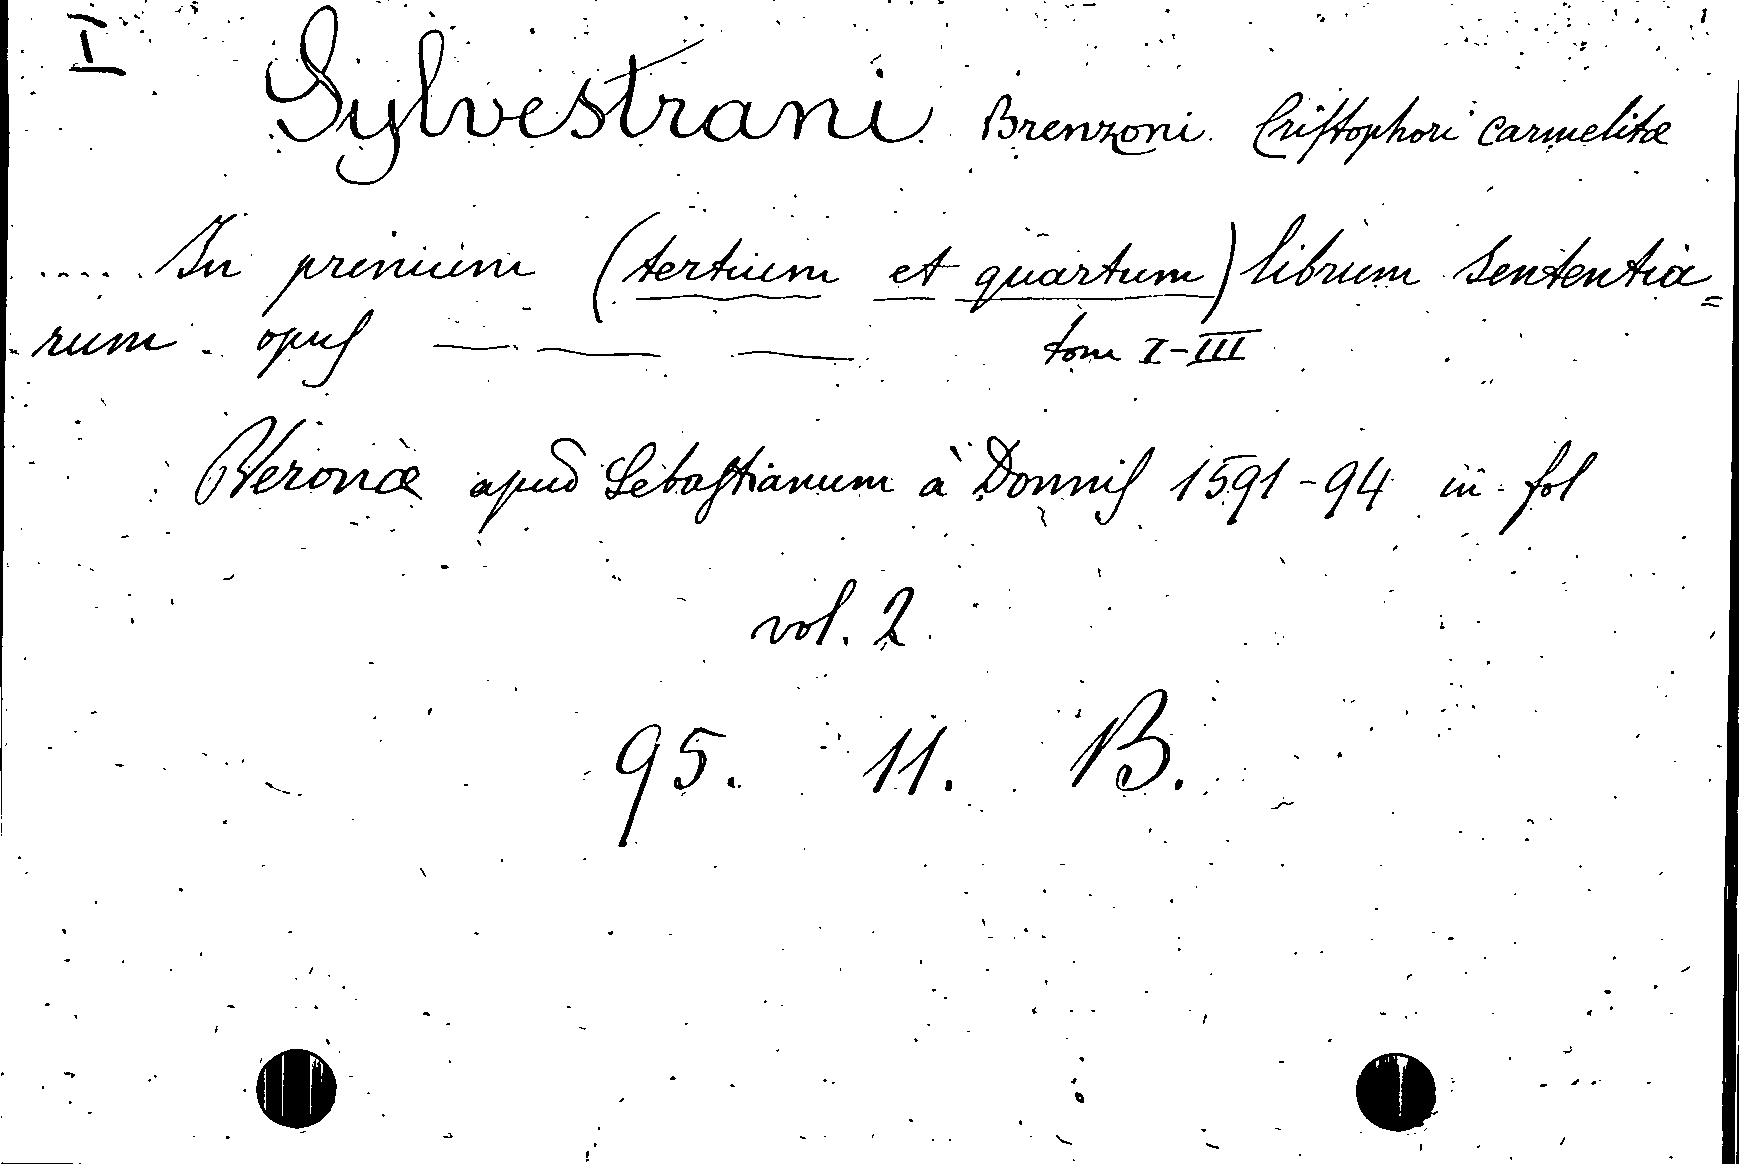 Sylvestrani Brenzoni Criſtophori Carmelitæ
.... In primum (tertium et quartum) librum Sententia=
rum opuſ — — — tom I-III
Veronæ apud Sebaſtianum à Donniſ 1591-94 in fol
vol. 2
95. 11. B.